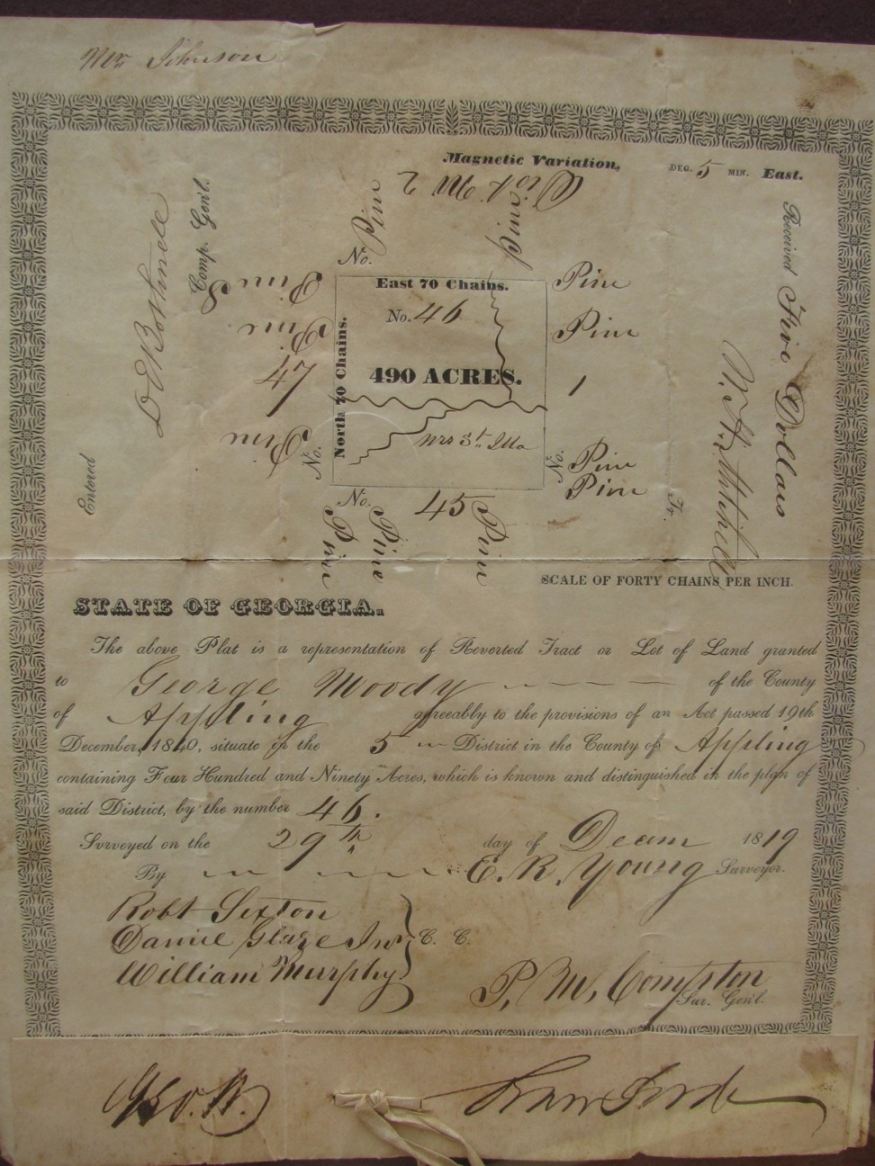 Mr Johnson
Magnetic Variation, DEG. 5 MIN. East.
Dist No 2
Received Five Dollars
Tr.
Entered
Comp. Gen'l.
No. Pine
Pine
Pine
Pine
47
Pine
No.
East 70 Chains.
No. 46
North 70 Chains.
490 ACRES.
Pine
Pine
1
No. Pine
Pine
No. 45
Pine
Pine
Pine
SCALE OF FORTY CHAINS PER INCH.
STATE OF GEORGIA.
The above Plat is a representation of Reverted Tract or Lot of Land granted
to George Moody of the County
of Appling agreeably to the provisions of an Act passed 19th
December, 1840, situate in the 5 District in the County of Appling
containing Four Hundred and Ninety Acres, which is known and distinguished in the plan of
said District, by the number 46.
Surveyed on the 29th day of Decem 1819
By E. R. Young Surveyor.
Robt Sexton
Daniel Glaze Jnr C. C.
William Murphy
P. M. Compton
Sur. Gen'l.
Geo. W. Crawford